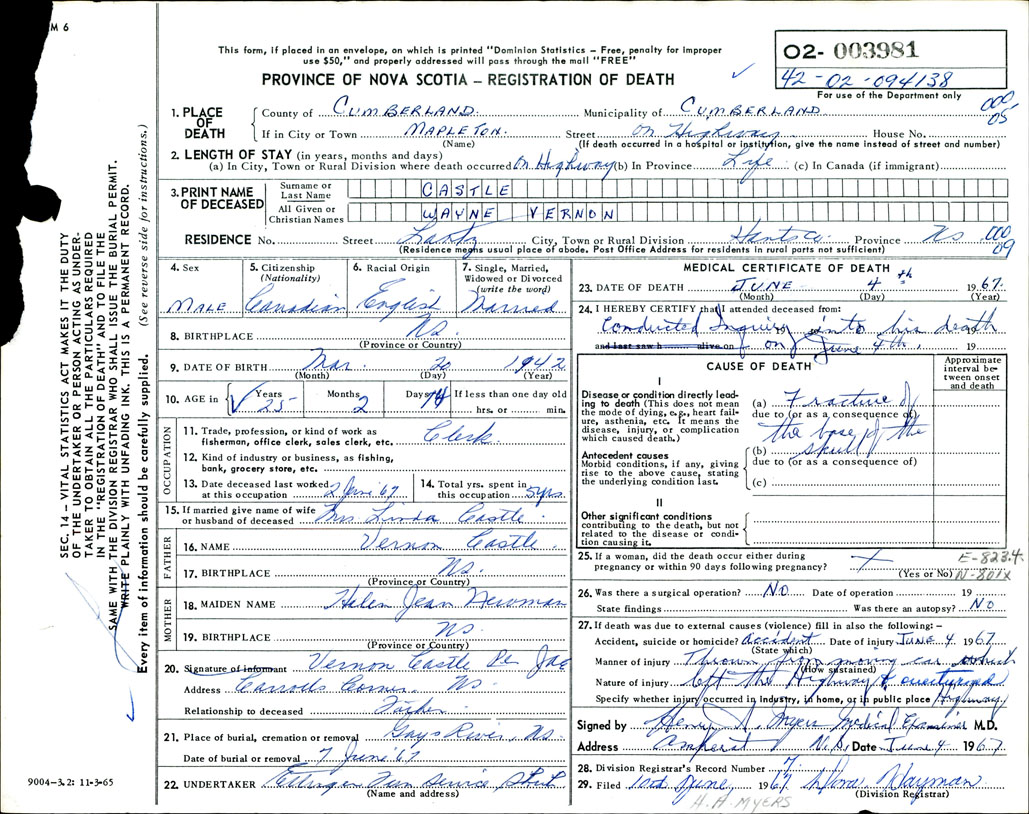 M 6
This form, if placed in an envelope, on which is printed "Dominion Statistics – Free, penalty for improper
use $50," and properly addressed will pass through the mail "FREE"
PROVINCE OF NOVA SCOTIA – REGISTRATION OF DEATH
02- 003981
42-02-094138
For use of the Department only
000
05
1. PLACE OF DEATH County of CUMBERLAND. Municipality of CUMBERLAND
If in City or Town MAPLETON. Street On Highway House No.
(Name) (If death occurred in a hospital or institution, give the name instead of street and number)
2. LENGTH OF STAY (in years, months and days)
(a) In City, Town or Rural Division where death occurred On Highway (b) In Province Life (c) In Canada (if immigrant)
3. PRINT NAME OF DECEASED Surname or Last Name CASTLE
All Given or Christian Names WAYNE VERNON
RESIDENCE No. Street Lantz City, Town or Rural Division Hants Co. Province NS 000
09
(Residence means usual place of abode. Post Office Address for residents in rural parts not sufficient)
4. Sex 5. Citizenship (Nationality) 6. Racial Origin 7. Single, Married, Widowed or Divorced (write the word)
MALE Canadian English Married
8. BIRTHPLACE NS.
(Province or Country)
9. DATE OF BIRTH Mar. 20 1942
(Month) (Day) (Year)
10. AGE in Years 25 Months 2 Days 14 If less than one day old
hrs. or min.
OCCUPATION
11. Trade, profession, or kind of work as
fisherman, office clerk, sales clerk, etc. Clerk
12. Kind of industry or business, as fishing,
bank, grocery store, etc.
13. Date deceased last worked at this occupation 2 June '67
14. Total yrs. spent in this occupation 5 yrs.
15. If married give name of wife
or husband of deceased Mrs. Linda Castle
FATHER
16. NAME Vernon Castle
17. BIRTHPLACE NS.
(Province or Country)
MOTHER
18. MAIDEN NAME Helen Jean Newman
19. BIRTHPLACE NS.
(Province or Country)
20. Signature of informant Vernon Castle Per
Address Carrolls Corner. NS.
Relationship to deceased Father
21. Place of burial, cremation or removal Gays River, NS.
Date of burial or removal 7 June '67
22. UNDERTAKER
(Name and address)
MEDICAL CERTIFICATE OF DEATH
23. DATE OF DEATH JUNE 4th 1967.
(Month) (Day) (Year)
24. I HEREBY CERTIFY that I attended deceased from:
Conducted Inquiry into his death
and last saw h alive on on June 4th, 19
CAUSE OF DEATH
Approximate interval between onset and death
I
Disease or condition directly leading to death (This does not mean the mode of dying, e.g., heart failure, asthenia, etc. It means the disease, injury, or complication which caused death.)
(a) Fracture of
due to (or as a consequence of)
the base of the
Antecedent causes
Morbid conditions, if any, giving rise to the above cause, stating the underlying condition last.
(b) skull
due to (or as a consequence of)
(c)
II
Other significant conditions
contributing to the death, but not related to the disease or condition causing it.
25. If a woman, did the death occur either during
pregnancy or within 90 days following pregnancy?
(Yes or No)
E-823.4
N-801X
26. Was there a surgical operation? NO Date of operation 19
State findings Was there an autopsy? NO
27. If death was due to external causes (violence) fill in also the following:–
Accident, suicide or homicide? Accident Date of injury JUNE 4 1967
(State which)
Manner of injury Thrown from moving car which
(How sustained)
Nature of injury left the Highway & overturned
Specify whether injury occurred in industry, in home, or in public place Highway
Signed by Henry A. Myers Medical Examiner M.D.
Address Amherst N.S. Date June 4 1967.
28. Division Registrar's Record Number 7.
29. Filed 10th June, 1967 Dora Wayman
(Division Registrar)
H. A. MYERS
SEC. 14 – VITAL STATISTICS ACT MAKES IT THE DUTY
OF THE UNDERTAKER OR PERSON ACTING AS UNDER-
TAKER TO OBTAIN ALL THE PARTICULARS REQUIRED
IN THE "REGISTRATION OF DEATH" AND TO FILE THE
SAME WITH THE DIVISION REGISTRAR WHO SHALL ISSUE THE BURIAL PERMIT.
WRITE PLAINLY WITH UNFADING INK. THIS IS A PERMANENT RECORD.
Every item of information should be carefully supplied. (See reverse side for instructions.)
9004-3.2: 11-3-65